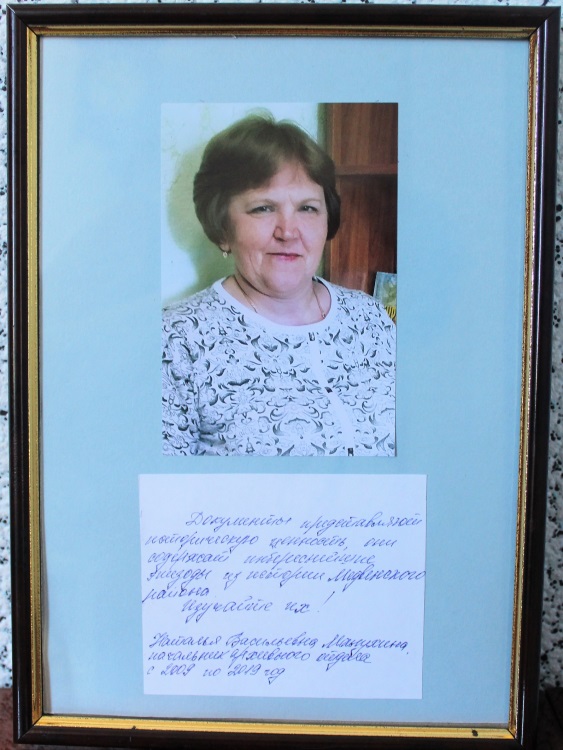 Документы представляют
историческую ценность, они
содержат интереснейшие
эпизоды из истории Медынского
района
Изучайте их!
Наталья Васильевна
начальник архивного отдела
с 2009 по 2019 год